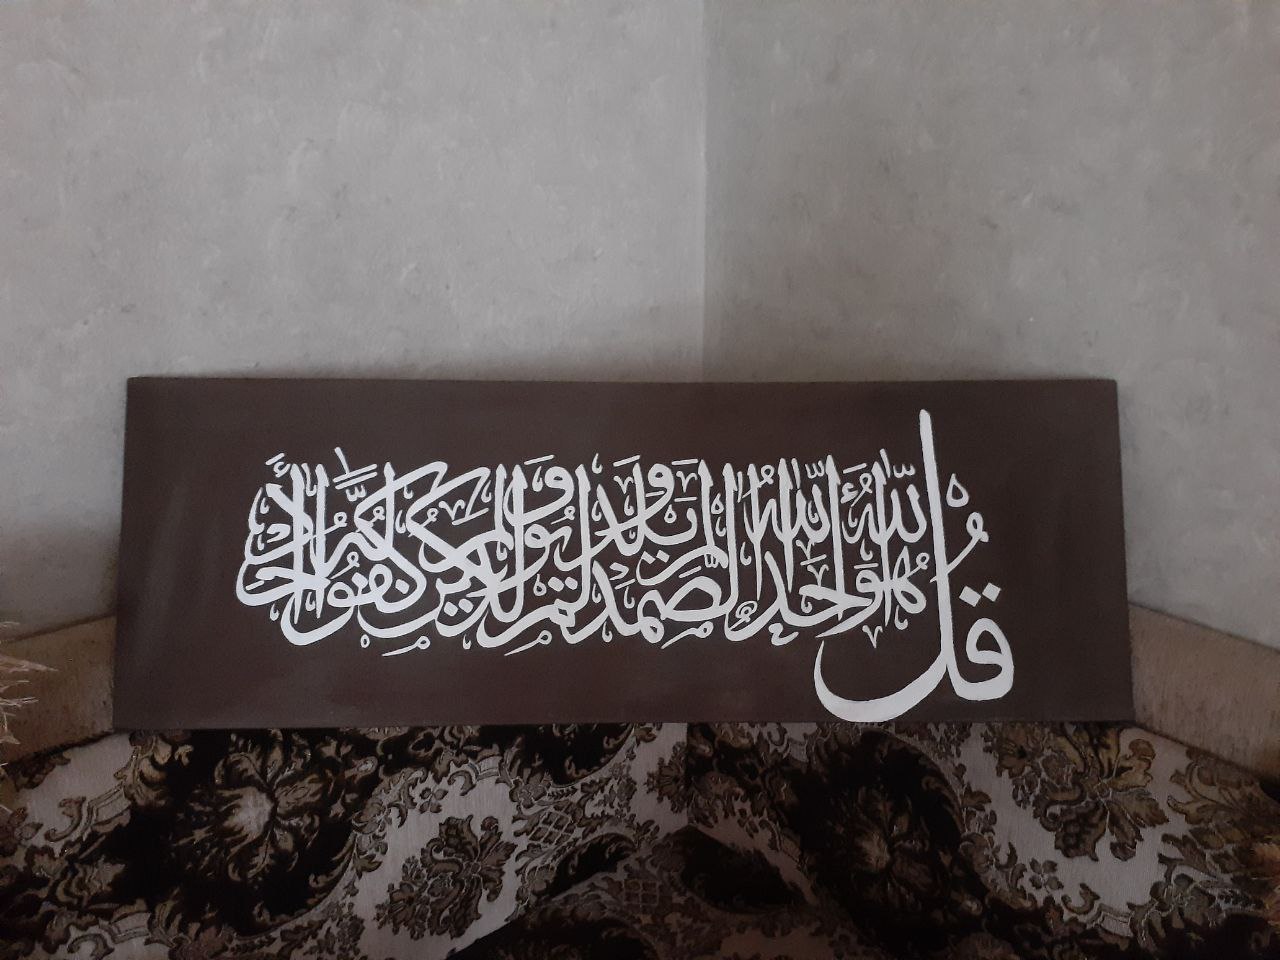 قُلْ هُوَ اللَّهُ أَحَدٌ اللَّهُ الصَّمَدُ لَمْ يَلِدْ وَلَمْ يُولَدْ وَلَمْ يَكُنْ لَهُ كُفُوًا أَحَدٌ